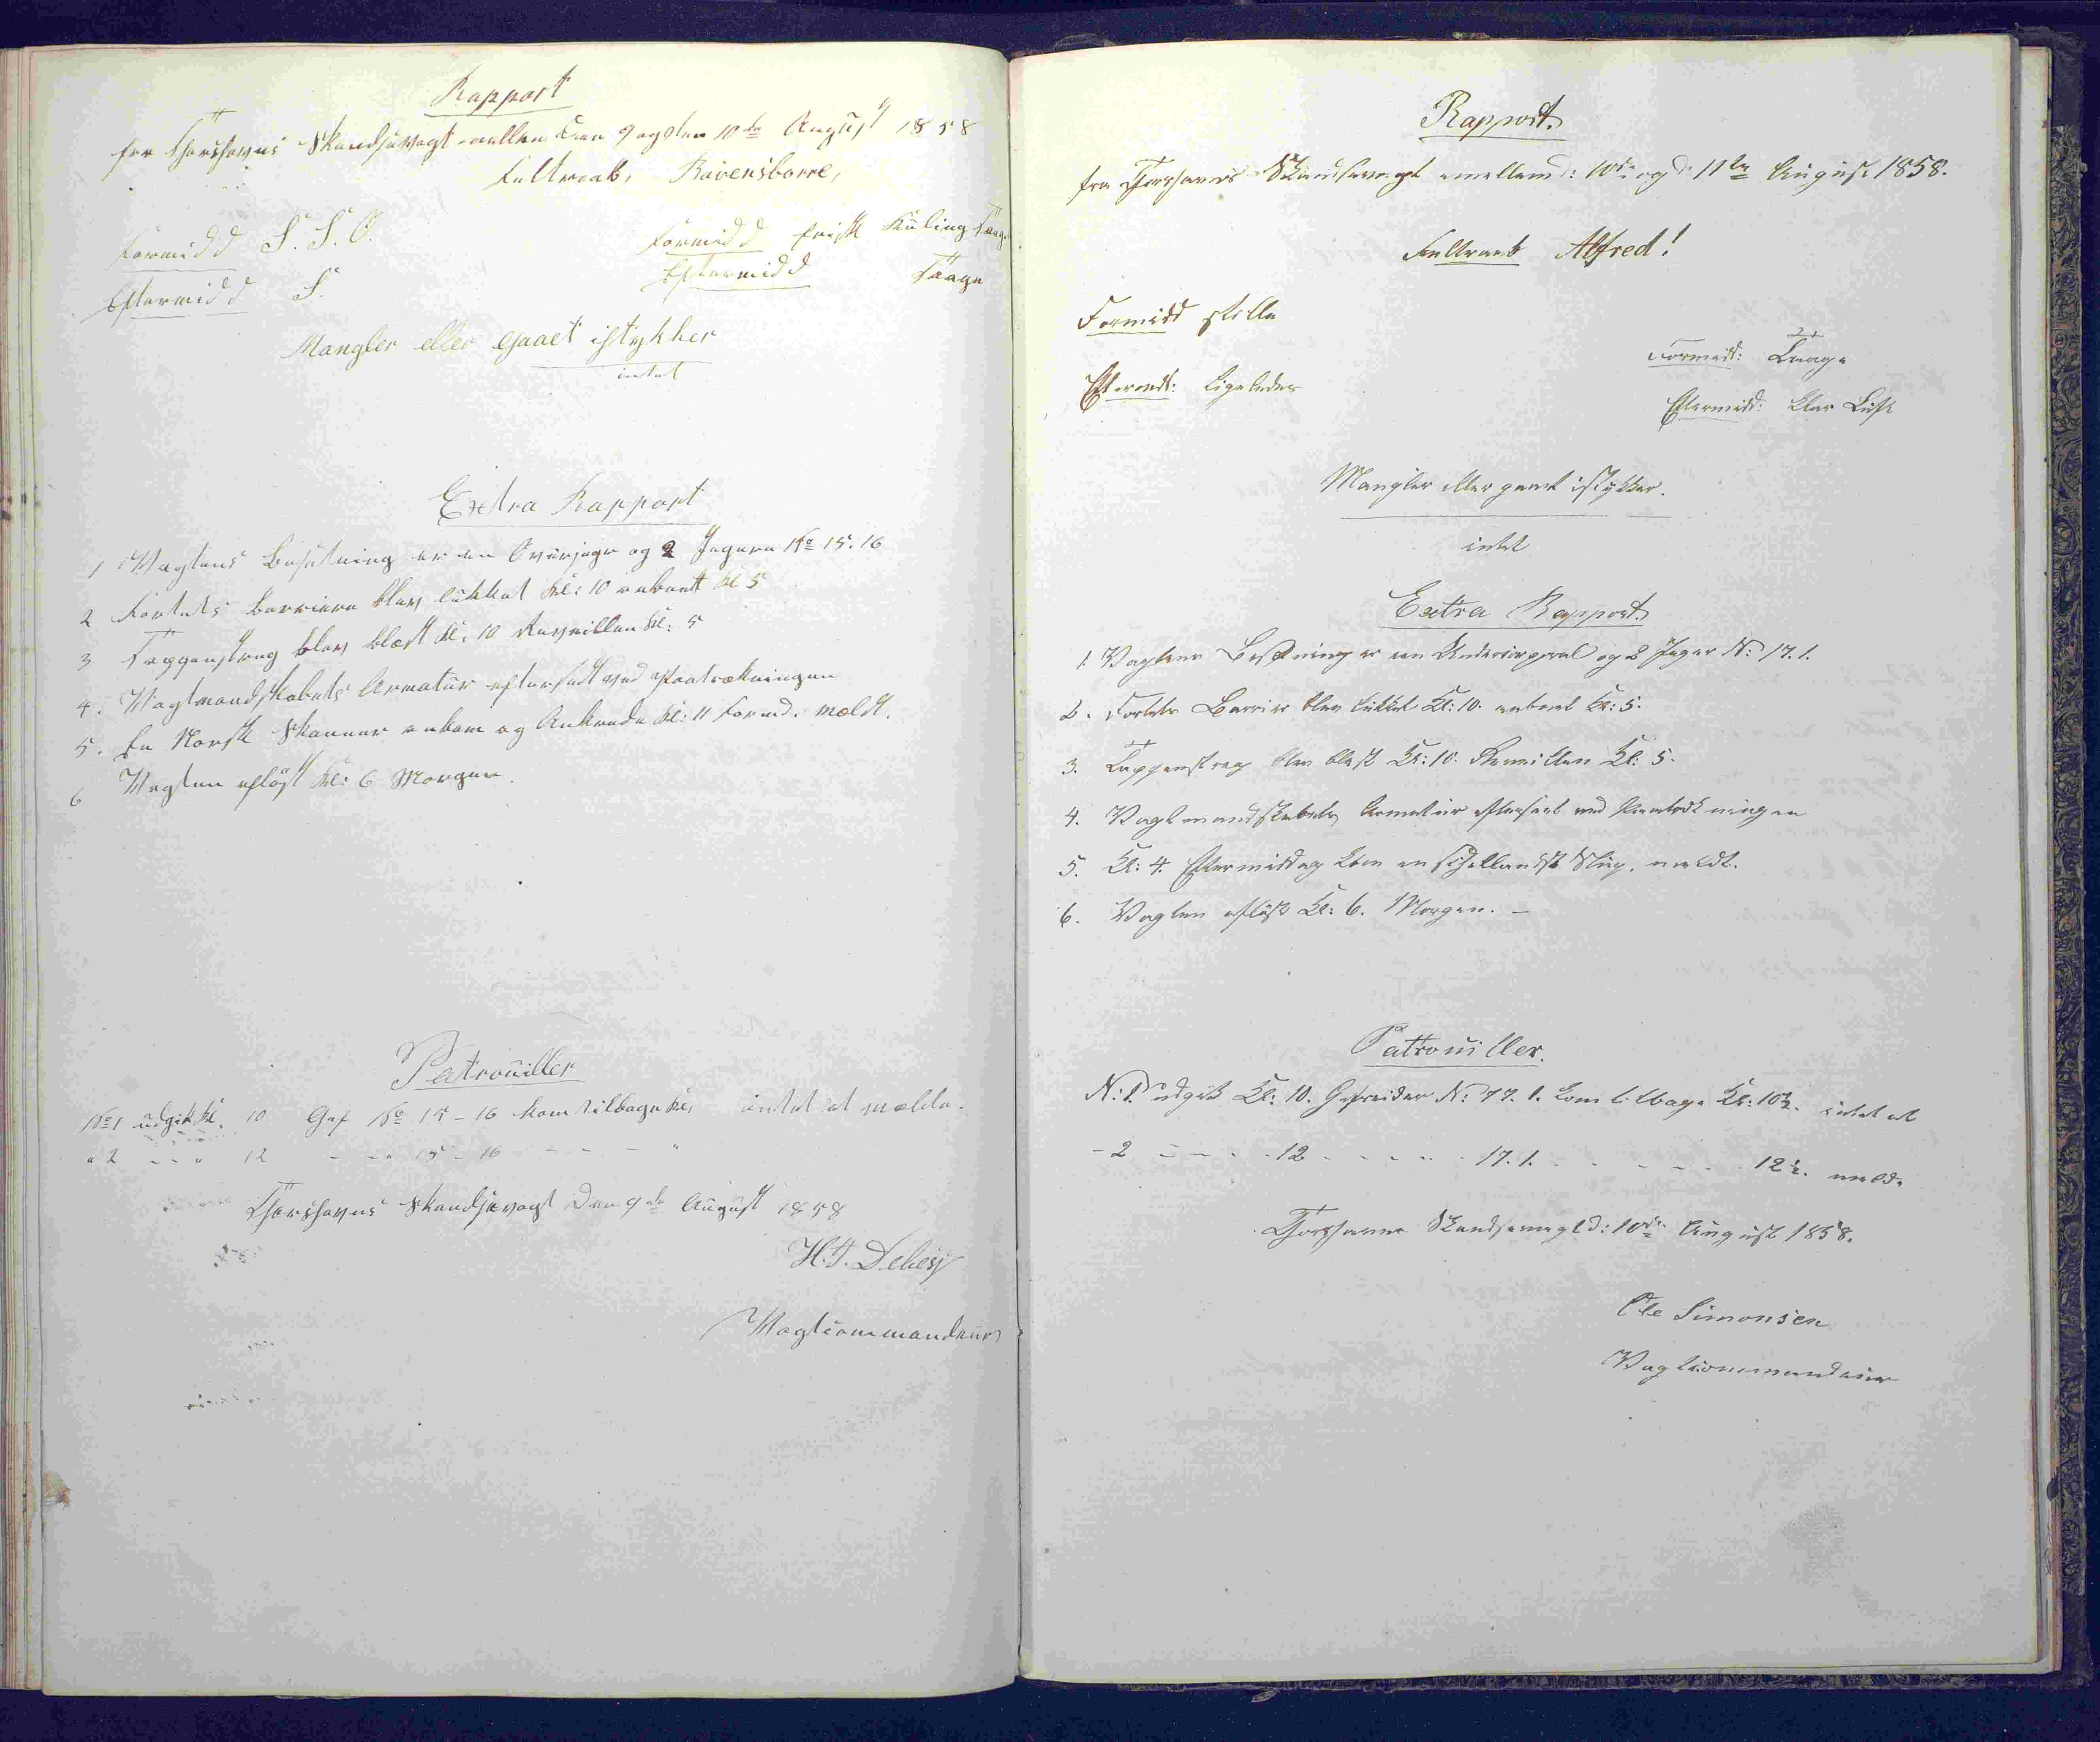 Rapport
fra Thorshavns Skandsevagt mellem den 9 og den 10de August 1858
Feltraab, Ravensborre,
Formidd S. S. O.
Formidd frisk Kuling Taage
Eftermidd S.
Eftermidd Taage
Mangler eller gaaet istykker
intet
Extra Rapport
1 Vagtens Besætning er en Overjæger og 2 Jægere No 15. 16
2 Fortets Barriere blev lukket Kl: 10 aabnet Kl 5
3 Tappenstreg blev blæst Kl: 10 Reveillen Kl: 5
4. Vagtmandskabets Armatur efterseet ved Paatrækningen
5. En Norsk Skonner ankom og Ankrede Kl: 11 Formd. meldt.
6 Vagten afløst Kl: 6 Morgen.
Patrouiller
No 1 udgik Kl. 10 Gef No 15 - 16 kom tilbage Kl, intet at melde.
" 2 - - " 12 - - " 15 - 16 - - - - "
Thorshavns Skandsevagt den 9de August 1858
H. P. Debes
Vagtcommandeur
Rapport.
fra Thorshavns Skandsevagt emellem d: 10de og d: 11te August 1858.
Feltraab Alfred!
Formidd stille
Formidd: Taage
Eftermd: Ligeledes
Eftermidd: klar Luft
Mangler eller gaaet istykker.
intet
Extra Rapport.
1. Vagtens Besætning er een Undercorporal og 2 Jæger N: 17. 1.
2. Fortets Barrier blev lukket Kl: 10. aabnet Kl: 5.
3. Tappenstreg blev blæst Kl: 10. Reveillen Kl: 5.
4. Vagtmandskabets Armatur efterseet ved Paatrækningen
5. Kl: 4. Eftermiddag kom en schellandsk Slup. meldt.
6. Vagten afløst Kl: 6. Morgen. -
Patrouiller.
N: 1. udgik Kl: 10. Gefreider N: 17. 1. kom tilbage Kl: 10½. intet at
- 2 - - - . 12 - - - - - 17. 1. - - - - - 12½. melde
Thorshavns Skandsevagt d: 10de August 1858.
Ole Simonsen
Vagtcommandeur